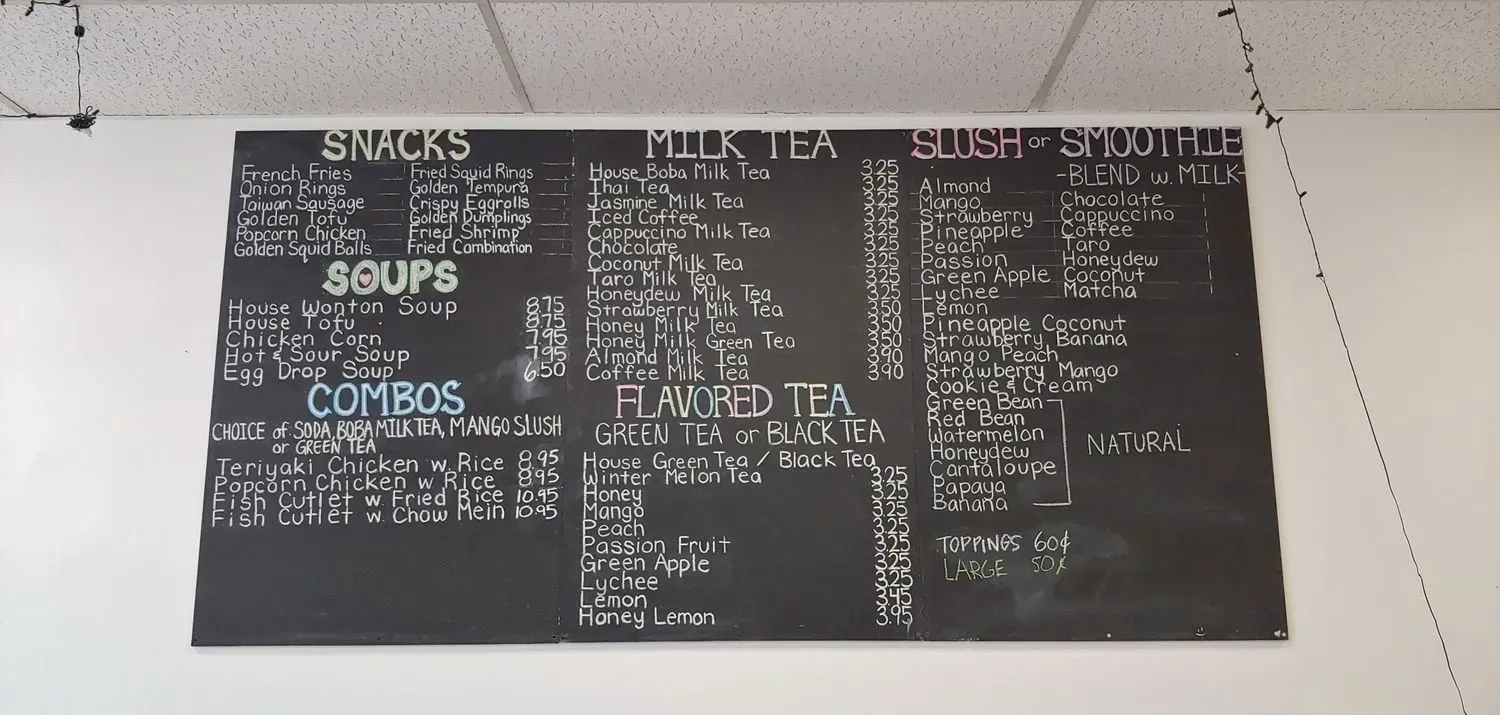 SNACKS
French Fries
Onion Rings
Taiwan Sausage
Golden Tofu
Popcorn Chicken
Golden Squid Balls
Fried Squid Rings
Golden Tempura
Crispy Eggrolls
Golden Dumplings
Fried Shrimp
Fried Combination
SOUPS
House Wonton Soup 8.75
House Tofu 8.75
Chicken Corn 7.95
Hot & Sour Soup 7.95
Egg Drop Soup 6.50
COMBOS
CHOICE of SODA, BOBA MILK TEA, MANGO SLUSH
or GREEN TEA
Teriyaki Chicken w. Rice 8.95
Popcorn Chicken w Rice 8.95
Fish Cutlet w. Fried Rice 10.95
Fish Cutlet w. Chow Mein 10.95
MILK TEA
House Boba Milk Tea 3.25
Thai Tea 3.25
Jasmine Milk Tea 3.25
Iced Coffee 3.25
Cappuccino Milk Tea 3.25
Chocolate 3.25
Coconut Milk Tea 3.25
Taro Milk Tea 3.25
Honeydew Milk Tea 3.25
Strawberry Milk Tea 3.50
Honey Milk Tea 3.50
Honey Milk Green Tea 3.50
Almond Milk Tea 3.90
Coffee Milk Tea 3.90
FLAVORED TEA
GREEN TEA or BLACK TEA
House Green Tea / Black Tea
Winter Melon Tea 3.25
Honey 3.25
Mango 3.25
Peach 3.25
Passion Fruit 3.25
Green Apple 3.25
Lychee 3.25
Lemon 3.45
Honey Lemon 3.95
SLUSH or SMOOTHIE
-BLEND w. MILK-
Almond
Mango
Strawberry
Pineapple
Peach
Passion
Green Apple
Lychee
Lemon
Pineapple Coconut
Strawberry Banana
Mango Peach
Strawberry Mango
Cookie & Cream
Green Bean
Red Bean
Watermelon
Honeydew
Cantaloupe
Papaya
Banana
Chocolate
Cappuccino
Coffee
Taro
Honeydew
Coconut
Matcha
NATURAL
TOPPINGS 60¢
LARGE 50¢